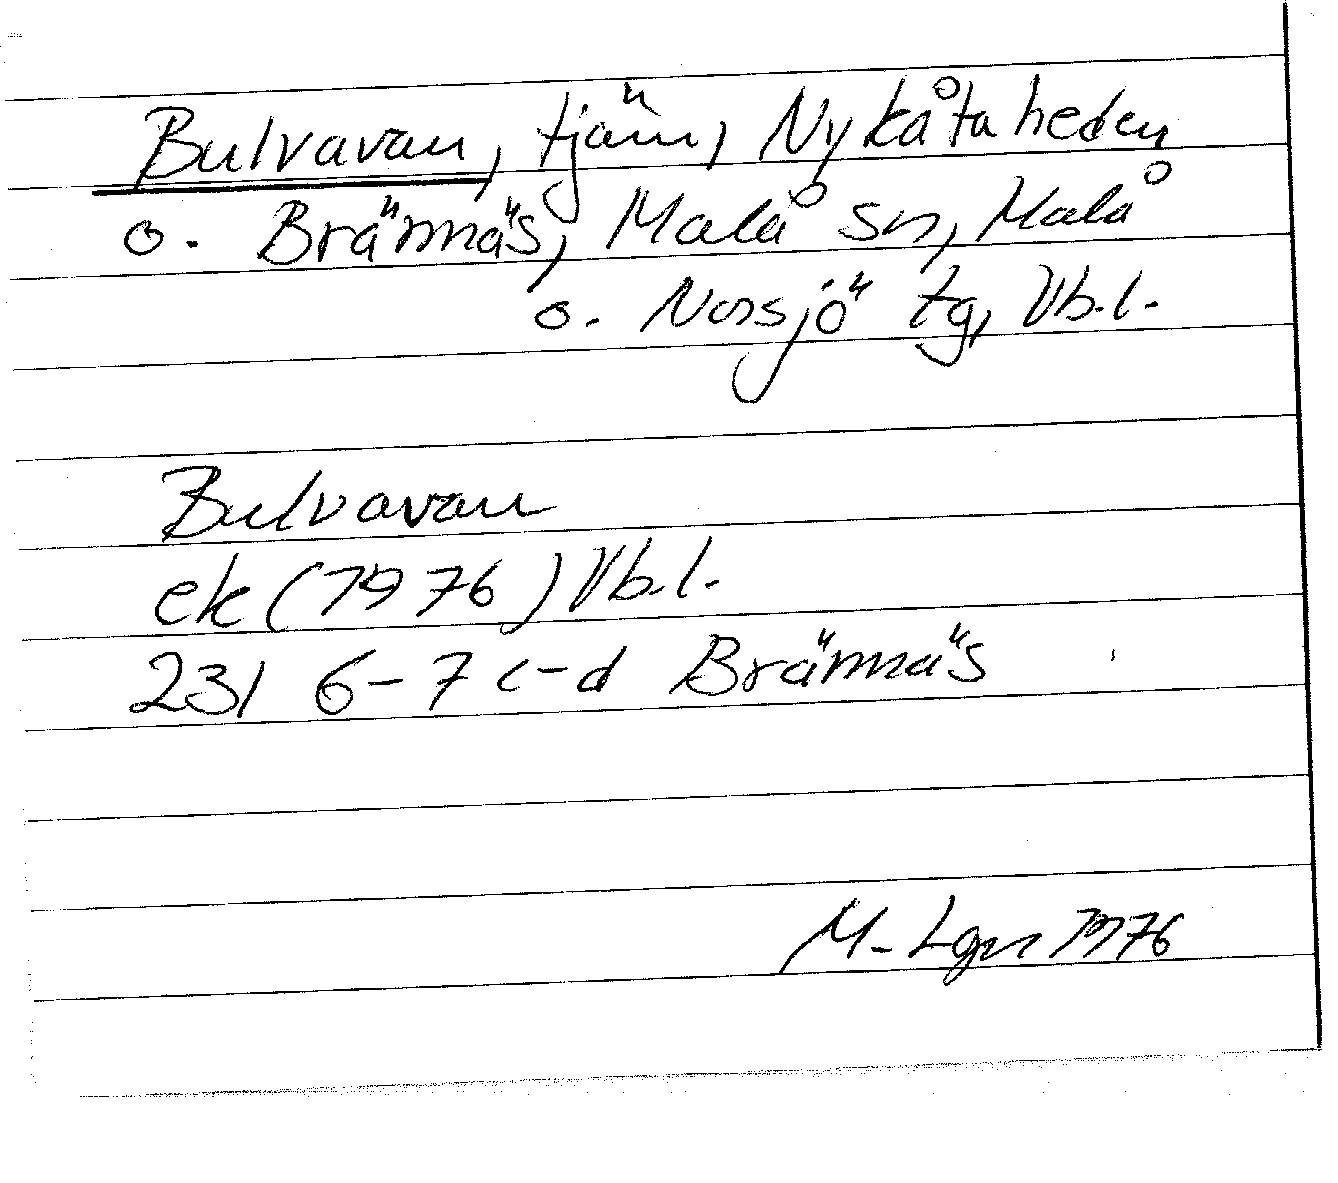 Bulvavan, tjärn, Nykåtaheden
o. Brännäs, Malå sn, Malå
o. Norsjö tg, Vb.l.
Bulvavan
ek (1976) Vb.l.
231 6-7 c-d Brännäs
M-Lgn 1976